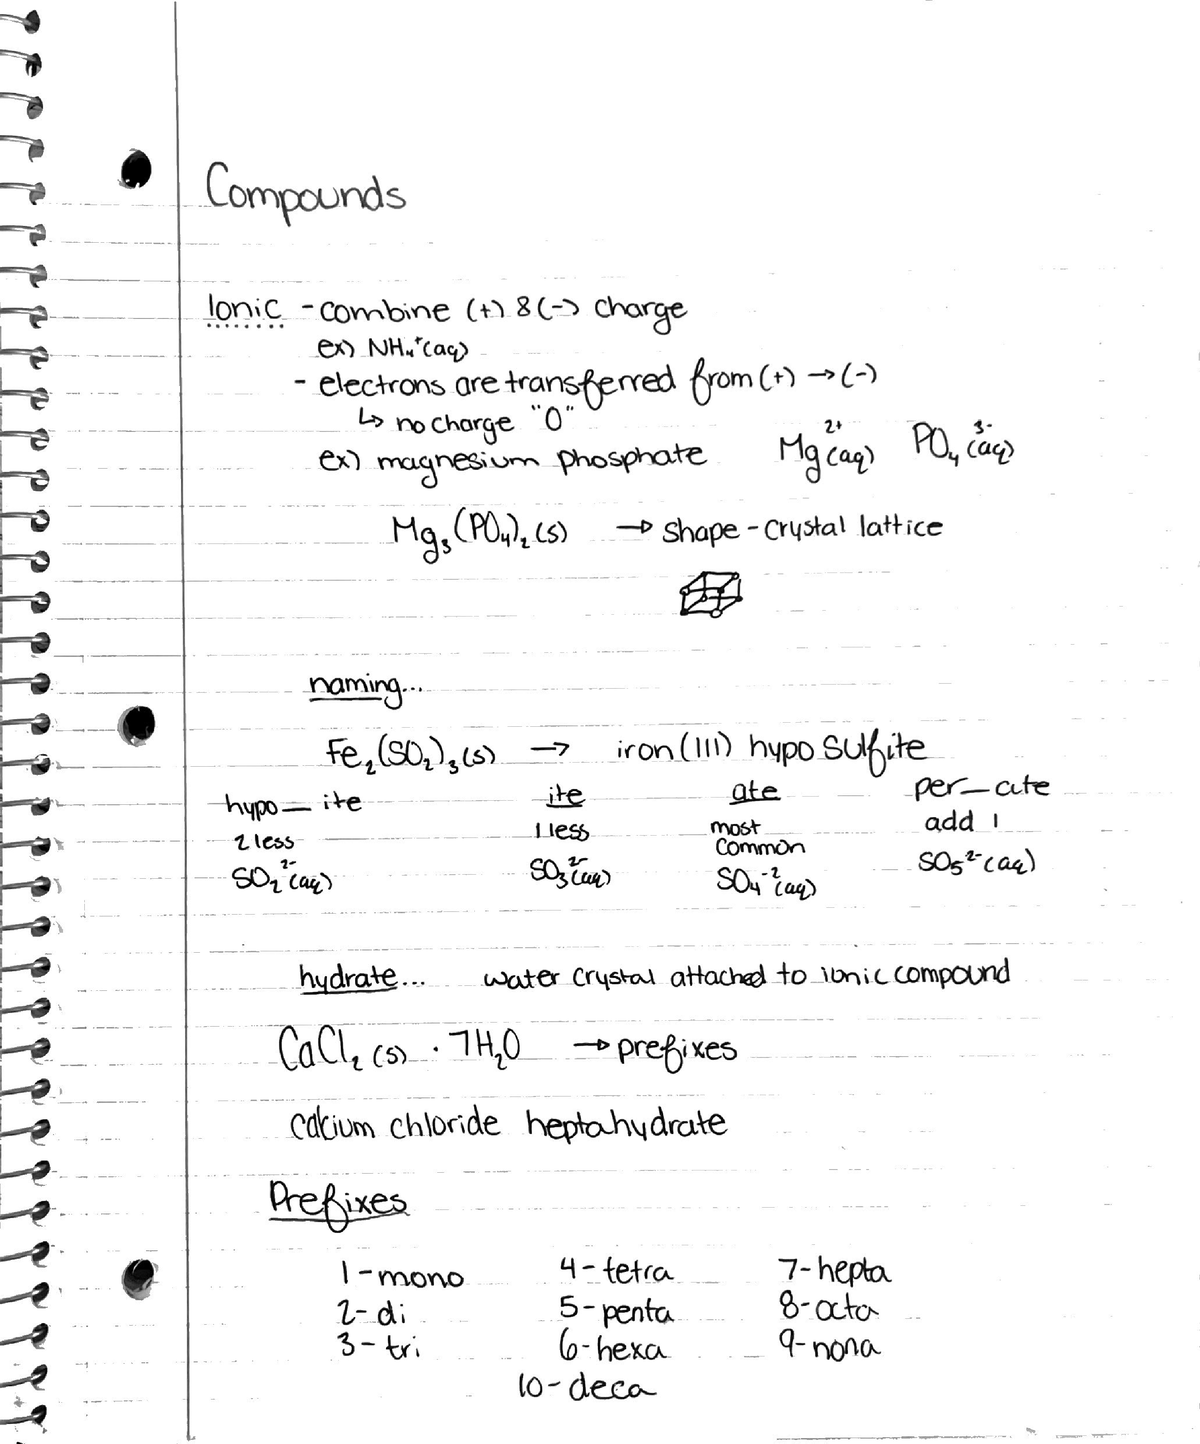 Compounds
Ionic - combine (+) & (-) charge
ex) NH₄⁺(aq)
- electrons are transferred from (+) → (-)
↳ no charge "0"
ex) magnesium phosphate Mg²⁺(aq) PO₄³⁻(aq)
Mg₃(PO₄)₂(s) → shape - crystal lattice
naming...
Fe₂(SO₂)₃(s) → iron(III) hyposulfite
hypo— ite ite ate per—ate
2 less 1 less most common add 1
SO₂²⁻(aq) SO₃²⁻(aq) SO₄⁻²(aq) SO₅²⁻(aq)
hydrate... water crystal attached to ionic compound
CaCl₂(s) · 7H₂O → prefixes
calcium chloride heptahydrate
Prefixes
1-mono 4-tetra 7-hepta
2-di 5-penta 8-octa
3-tri 6-hexa 9-nona
10-deca